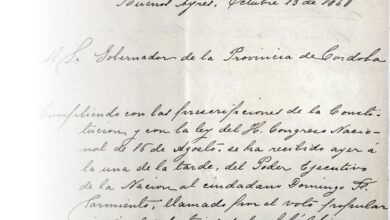 Buenos Ayres, Octubre 13 de 1868
Al Sr Gobernador de la Provincia de Cordoba
Cumpliendo con las prescripciones de la Consti-
tucion, y con la ley del H. Congreso Nacio-
nal de 16 de Agosto, se ha recibido ayer á
la una de la tarde, del Poder Ejecutivo
de la Nacion al ciudadano Domingo F.
Sarmiento, llamado por el voto popular